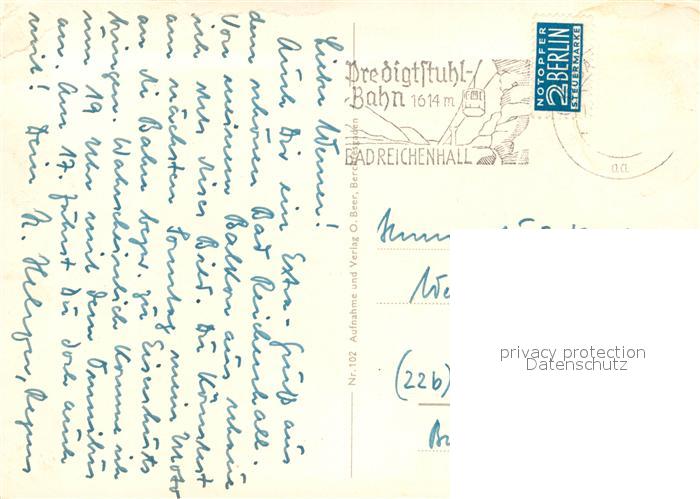 Lieber Werner!
Auch Dir ein Extra-Gruß aus
dem schönen Bad Reichenhall.
Von meinem Balkon aus schaue
ich dies Bild. Du könntest
am nächsten Sonntag mein Moto
an die Bahn bezw. zu Eisenhuts
bringen. Wahrscheinlich komme ich
um 19 Uhr mit dem Omnibus
an. Am 17. fährst Du doch auch
mit! Dein H.
Nr. 102 Aufnahme und Verlag O. Beer, Berchtesgaden
Predigtstuhl-
Bahn 1614 m
BAD REICHENHALL
NOTOPFER
2 BERLIN
STEUERMARKE
aa
(22b)
privacy protection
Datenschutz